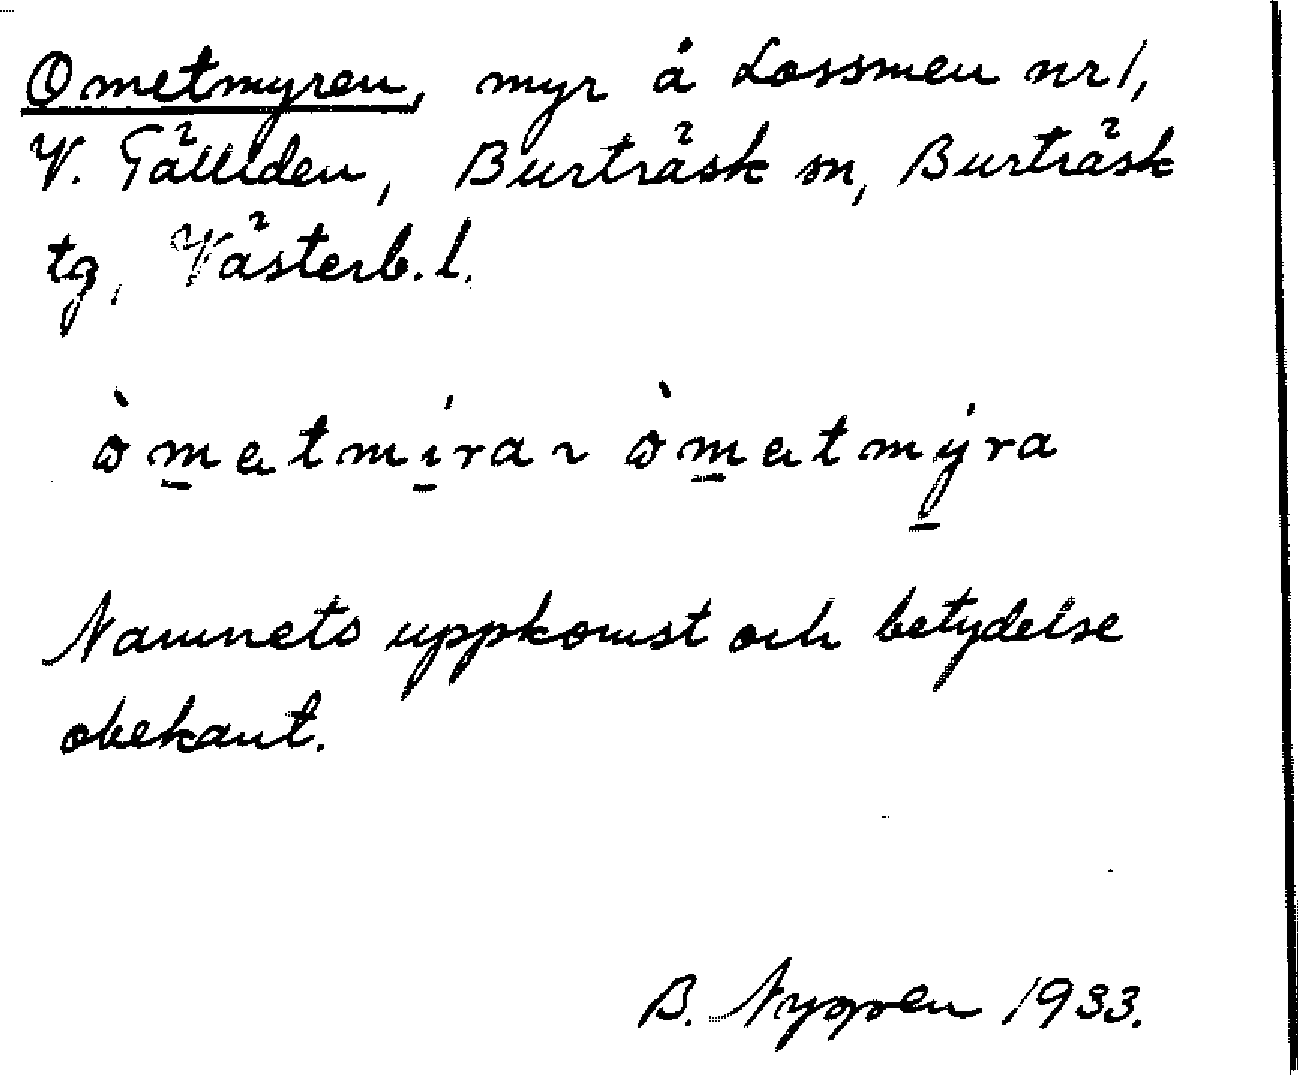 Ometmyren, myr å Lossmen nr 1,
V. Fälliden, Burträsk sn, Burträsk
tg, Västerb. l.
òmatmíra ~ òmatmýra
Namnets uppkomst och betydelse
obekant.
B. Nygren 1933.